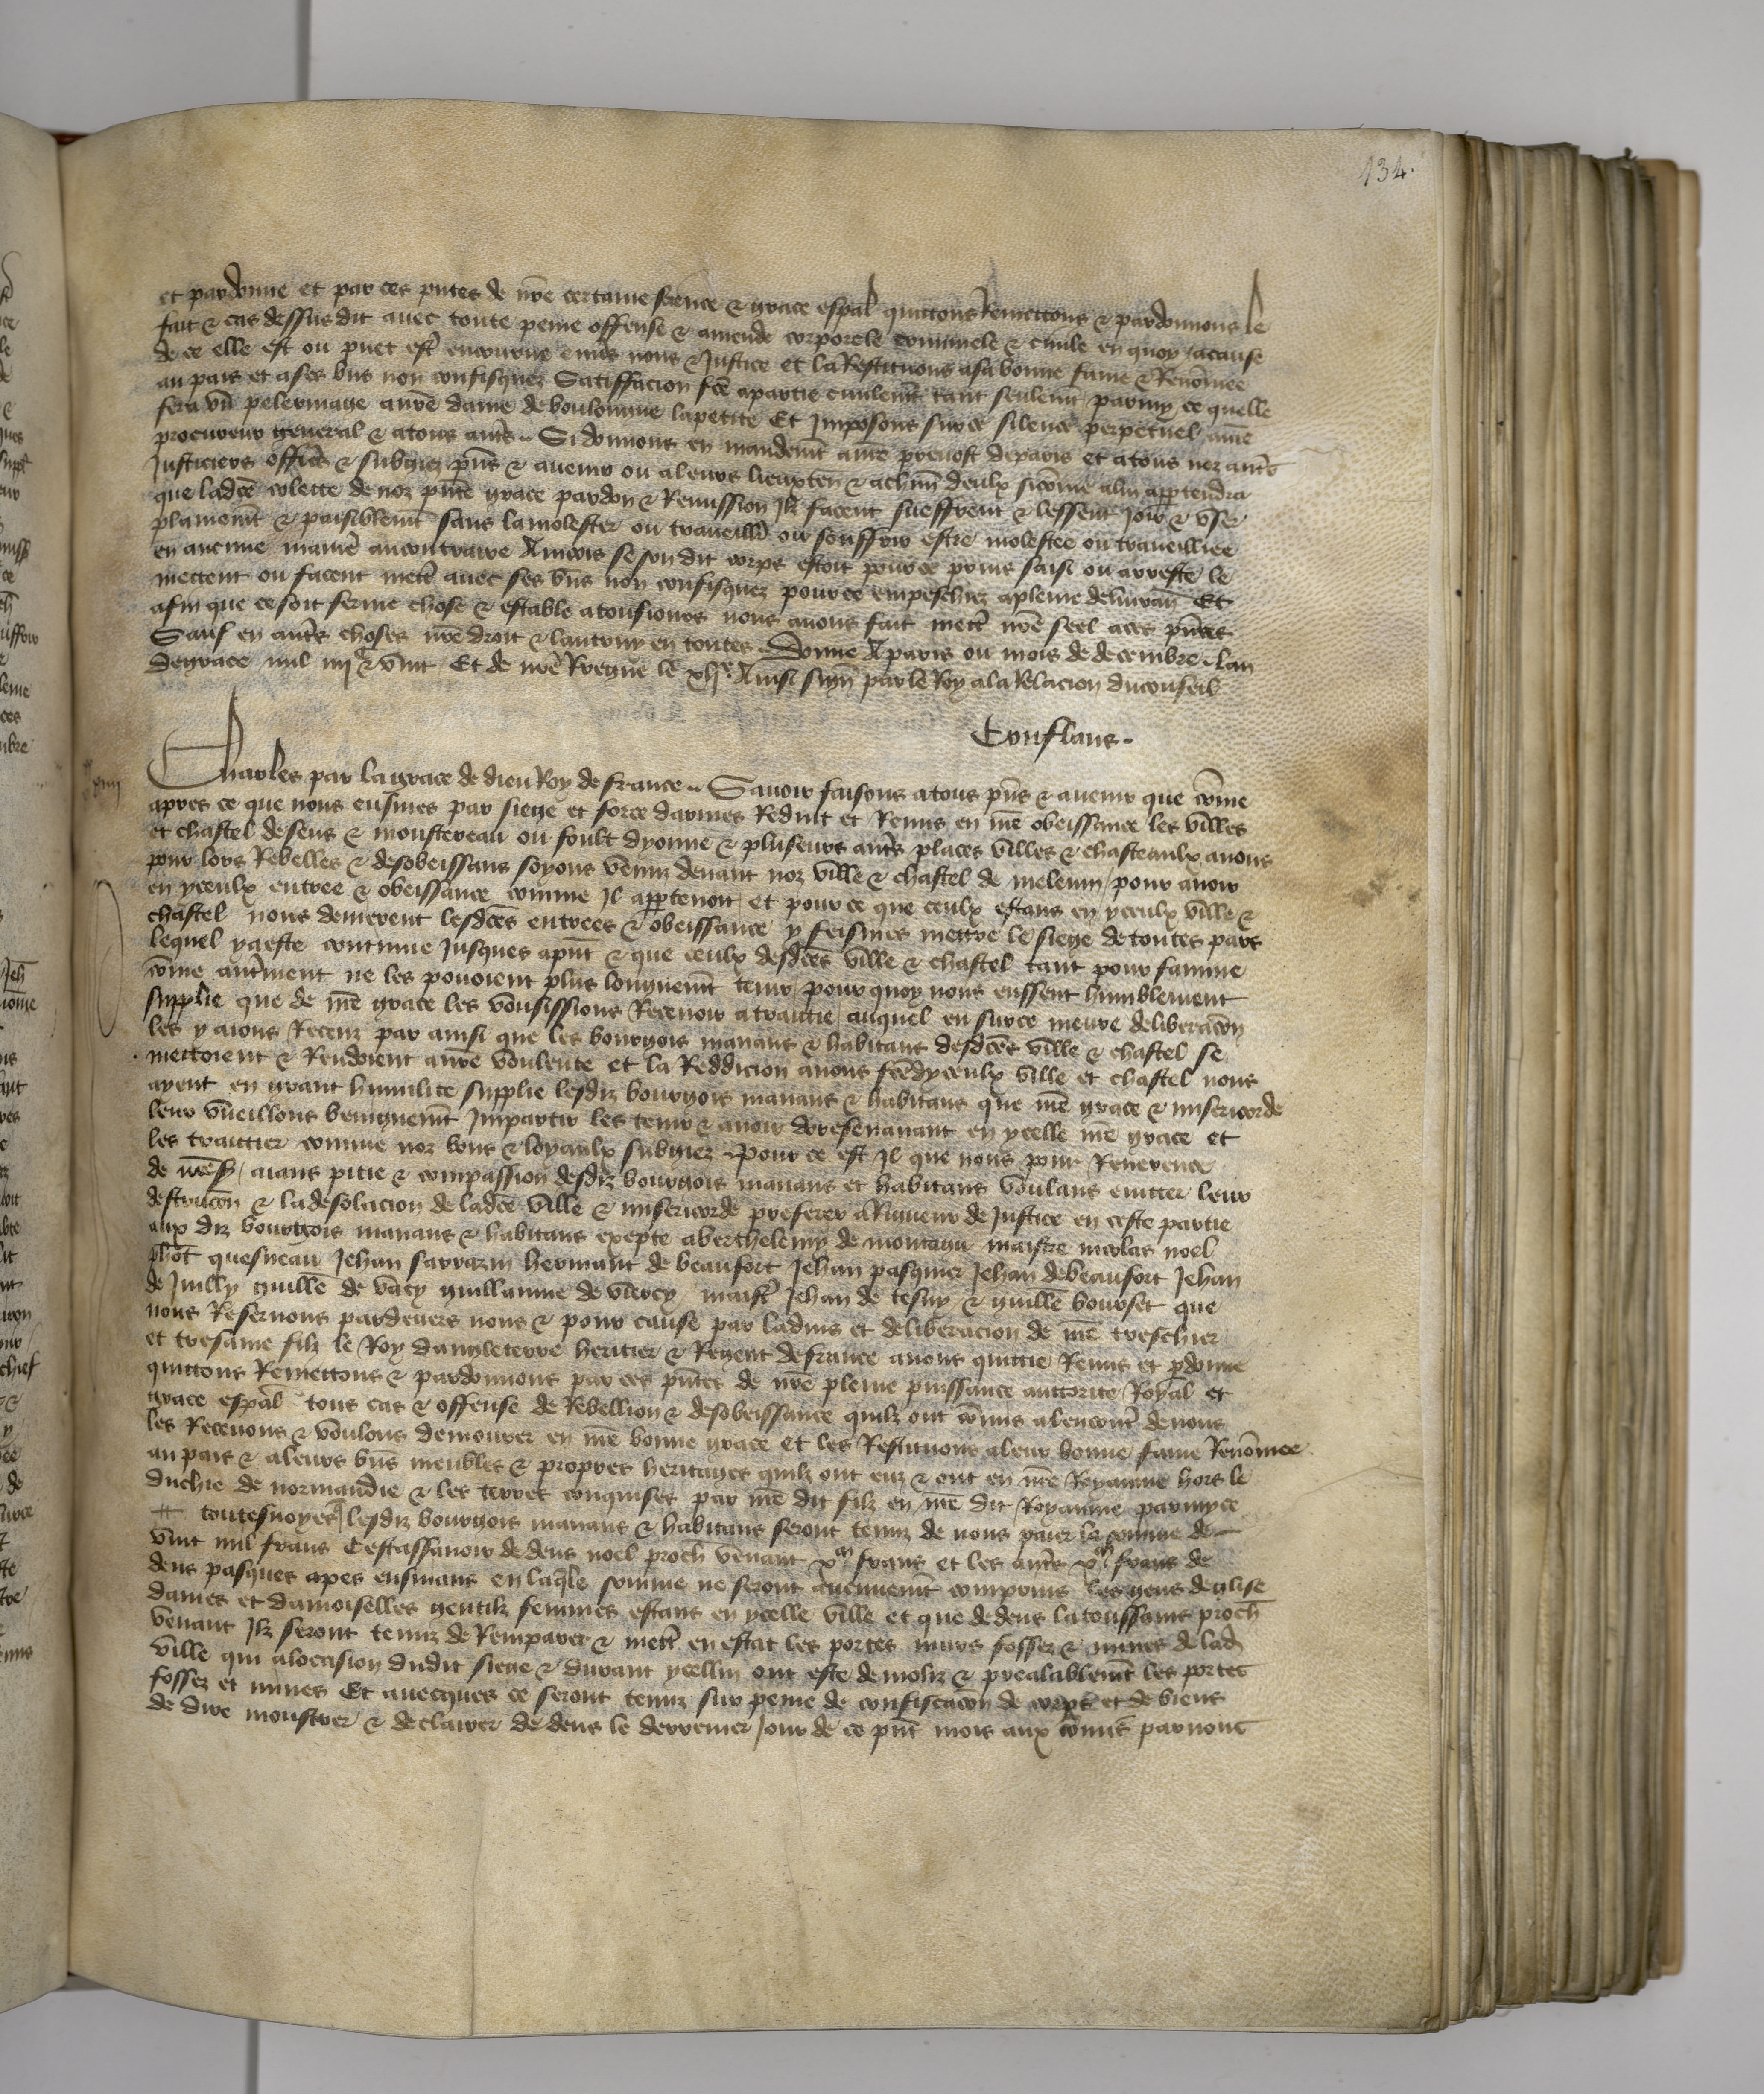 134.
et pardonne et par ces pntes de nre certaine science & grace espal quictons Remettons & pardonnons le
fait & cas dessus dit avec toute peine offense & amende corporele criminele & civile en quoy a cause
de ce elle est ou puet estre encourue envs nous & Justice et la Restituons a sa bonne fame & Renomee
au pais et a ses bns non confisquez Satisffacion fce a partie civilemt tant seulemt parmy ce quelle
fera un pelerinage a nre dame de bouloingne la petite Et Imposons sur ce silence perpetuel a nre
procureur general & a tous autrs Si donnons en mandemt a nre prevost de paris et a tous noz autrs
Justiciers officiers & subgiez pns & avenir ou a leurs lieuxten & a chun deulx sicome a lui appartendra
que ladce colette de noz pnte grace pardon & Remission Ilz facent sueffrent & lessent Joir & user
plainemt & paisiblemt sans la molester ou traveillier ou souffrir estre molestee ou traveilliee
en aucune maniere au contraire Aincois se son dit corps estoit pour ce prins saisi ou arreste le
mettent ou facent mettre avec ses bns non confisquez pour ce empeschiez a pleine delivran Et
afin que ce soit ferme chose & estable a tousiours nous avons fait mettre nre seel a ces pntes
Sauf en autrs choses nre droit & lautruy en toutes Donne A paris ou mois de decembre lan
de grace mil iiijc & vint Et de nre Regne le xlje Ainsi signe par le Roy a la Relacion du conseil
Conflans
Charles par la grace de dieu Roy de france Savoir faisons a tous pns & avenir que come
apres ce que nous eusmes par siege et force darmes Reduit et Remis en nre obeissance les villes
et chastel de sens & monstereau ou foult dyonne & pluseurs autrs places villes & chasteaulx a nous
pour lors Rebelles & desobeissans soyons venuz devant noz ville & chastel de meleun pour avoir
en yceulx entree & obeissance comme Il appartenoit et pour ce que ceulx estans en yceulx ville &
chastel nous denierent lesdces entrees & obeissance y feismes mettre le siege de toutes pars
lequel y a este continue Jusques a pnt & que ceulx desdces ville & chastel tant pour famine
come autrement ne les povoient plus longuemt tenir pour quoy nous eussent humblement
supplie que de nre grace les voulsissions Recevoir a traictie auquel eu sur ce meure deliberacon
les y aions Receuz par ainsi que les bourgois manans & habitans desdces ville & chastel se
mettoient & Rendoient a nre voulente et la Reddicion a nous fce dyceulx ville et chastel nous
ayent en grant humilite supplie lesdiz bourgois manans & habitans que nre grace & misericorde
leur vueillons benignemt Impartir les tenir & avoir doresenavant en ycelle nre grace et
les traictier comme noz bons & loyaulx subgiez Pour ce est Il que nous pour Reverence
de nre s aians pitie & compassion desdiz bourgois manans et habitans voulans eviter leur
destrucon & la desolacion de ladce ville & misericorde preferer a Rigueur de Justice en ceste partie
aux diz bourgois manans & habitans exepte a berthelemy de montagu maistre nicolas noel
phot quesneau Jehan sarrazin hermant de beaufort Jehan pasquier Jehan de beaufort Jehan
de Juilly guille de vacy guillaume de viercy maistre Jehan de tesny & guille bourset que
nous Reservons pardevers nous & pour cause par ladvis et deliberacion de nre treschier
et tresame filz le Roy dangleterre heritier & Regent de france avons quictie Remis et pdonne
quictons Remettons & pardonnons par ces pntes de nre pleine puissance auctorite Royal et
grace espal tous cas & offense de Rebellion & desobeissance quilz ont comis a lencontre de nous
les Recevons & voulons demourer en nre bonne grace et les Restituons a leur bonne fame Renomee
au pais & a leurs bns meubles & propres heritages quilz ont euz & ont en nre Royaume hors le
duchie de normandie & les terres conquises par nre dit filz en nre dit Royaume parmy ce
toutesvoyes q lesdiz bourgois manans & habitans seront tenuz de nous paier la somme de
vint mil frans Cestassavoir dedens noel proch venant xm frans et les autrs xm frans de
dens pasques apres ensuivans en laqlle somme ne seront aucunemt comprins les gens deglise
dames et damoiselles gentilz femmes estans en ycelle ville et que dedens la toussains proch
venant Ilz seront tenuz de Remparer & mettre en estat les portes murs fossez & mines de lad
ville qui a loccasion dudit siege & durant ycellui ont este demoliz & prealablemt les portes
fossez et mines Et avecques ce seront tenuz sur peine de confiscacon de corps et de biens
de dire monstrer & declairer dedens le derrenier Jour de ce pnt mois aux comis par nous